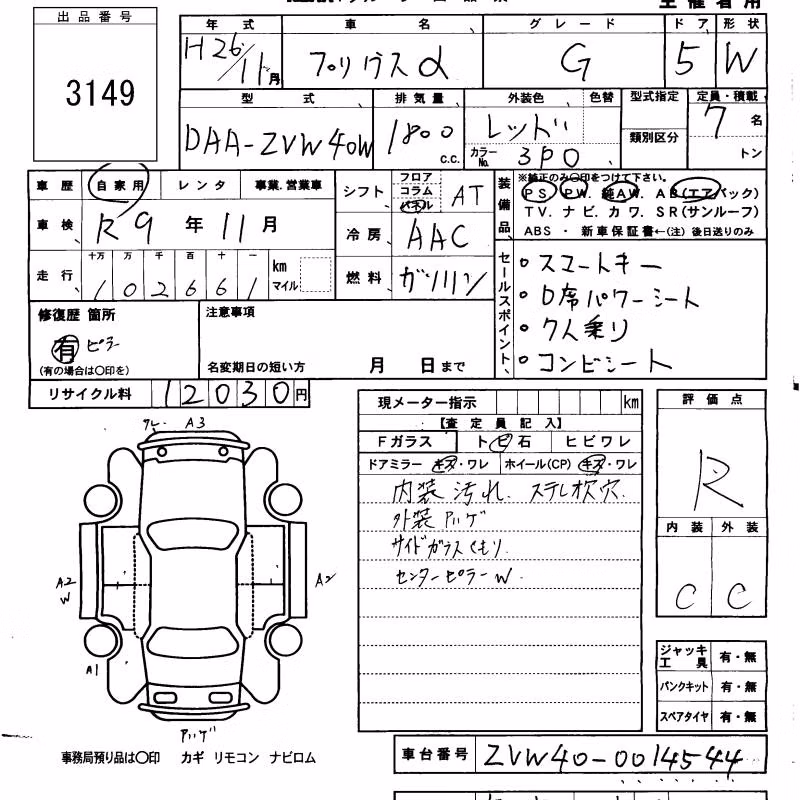 出品番号
3149
年式 車名 グレード ドア 形状
H26/11月 プリウスα G 5 W
型式 排気量 外装色 色替 型式指定 定員・積載
DAA-ZVW40W 1800 c.c. レッド 類別区分 7名
カラーNo. 3P0 トン
車歴 自家用 レンタ 事業.営業車
シフト フロア コラム パネル AT
装備品 ※純正のみ〇印をつけて下さい。
PS PW. 純AW. AB(エアバック)
TV. ナビ. カワ. SR(サンルーフ)
ABS ・ 新車保証書←(注) 後日送りのみ
車検 R9年11月
冷房 AAC
走行 十万 万 千 百 十 一 km マイル
102661
燃料 ガソリン
セールスポイント
・スマートキー
・D席パワーシート
・7人乗り
・コンビシート
修復歴 箇所
有 ピラー
(有の場合は〇印を)
注意事項
名変期日の短い方 月 日まで
リサイクル料 12030円
現メーター指示 km
【査定員記入】
Fガラス トビ石 ヒビワレ
ドアミラー キズ・ワレ ホイール(CP) キズ・ワレ
内装 汚れ. ステレオ欠穴.
外装 Aハゲ
サイドガラスくもり.
センターピラーW
評価点
R
内装 外装
C C
A3
A2
W
A2
A1
ジャッキ 工具 有・無
パンクキット 有・無
スペアタイヤ 有・無
事務局預り品は〇印 カギ リモコン ナビロム
車台番号 ZVW40-0014544